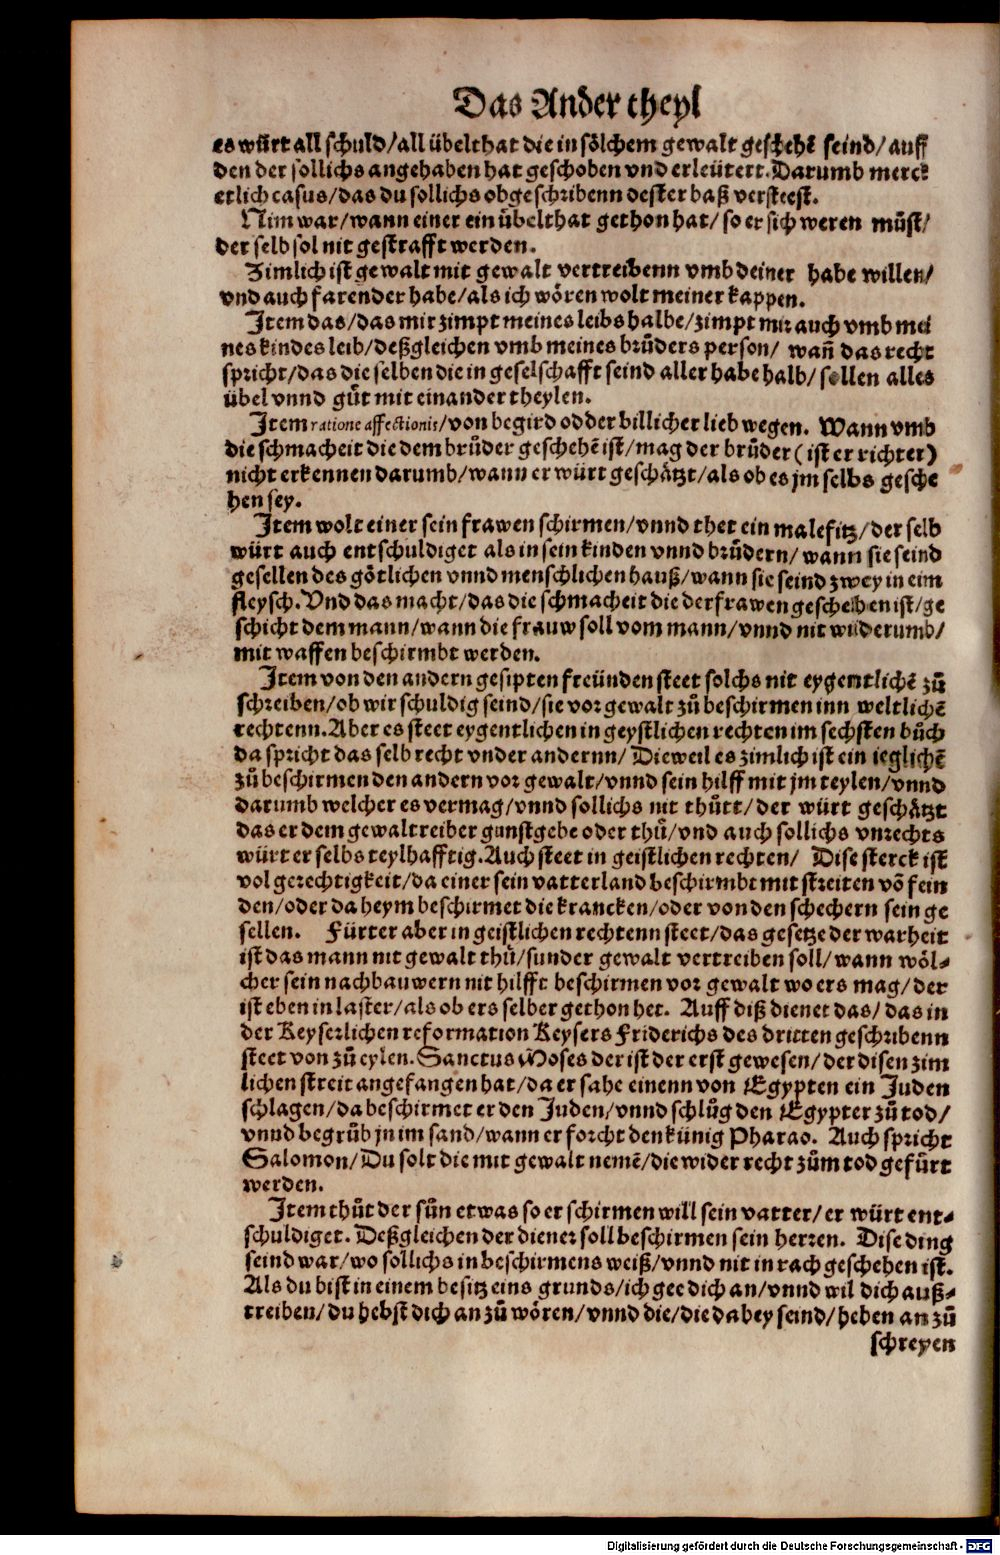 Das Ander theyl
es wu᷑rt all schuld/all übelthat die in sölchem gewalt geschehē seind/ auff
den der sollichs angehaben hat geschoben vnd erleütert. Darumb merck
etlich casus/das du sollichs obgeschribenn dester baß versteest.
Nim war/wann einer ein übelthat gethon hat/ so er sich weren mu᷑st/
der selb sol nit gestrafft werden.
Zimlich ist gewalt mit gewalt vertreibenn vmb deiner habe willen/
vnd auch farender habe/als ich wören wolt meiner kappen.
Item das/das mir zimpt meines leibs halbe/zimpt mir auch vmb mei
nes kindes leib/deßgleichen vmb meines brůders person/ wañ das recht
spricht/das die selben die in geselschafft seind aller habe halb/ sollen alles
übel vnnd gůt mit einander theylen.
Item ratione affectionis/von begird odder billicher lieb wegen. Wann vmb
die schmacheit die dem brůder geschehē ist/mag der brůder (ist er richter)
nicht erkennen darumb/wann er würt geschätzt/als ob es jm selbs gesche
hen sey.
Item wolt einer sein frawen schirmen/vnnd thet ein malefitz/der selb
würt auch entschuldiget als in sein kinden vnnd brůdern/ wann sie seind
gesellen des götlichen vnnd menschlichen hauß/wann sie seind zwey in eim
fleysch. Vnd das macht/das die schmacheit die der frawen geschehen ist/ge
schicht dem mann/wann die frauw soll vom mann/vnnd nit widerumb/
mit waffen beschirmbt werden.
Item von den andern gesipten freünden steet solchs nit eygentlichē zů
schreiben/ob wir schuldig seind/sie vor gewalt zů beschirmen inn weltlichē
rechtenn. Aber es steet eygentlichen in geystlichen rechten im sechsten bůch
da spricht das selb recht vnder andernn/ Dieweil es zimlich ist ein ieglichē
zů beschirmen den andern vor gewalt/vnnd sein hilff mit jm teylen/vnnd
darumb welcher es vermag/vnnd sollichs nit thůtt/der würt geschätzt
das er dem gewaltreiber gunst gebe oder thů/vnd auch sollichs vnrechts
würt er selbs teylhafftig. Auch steet in geistlichen rechten/ Dise sterck ist
vol gerechtigkeit/da einer sein vatterland beschirmbt mit streiten vō fein
den/oder da heym beschirmet die krancken/oder von den schechern sein ge
sellen. Fürter aber in geistlichen rechtenn steet/das gesetze der warheit
ist das mann nit gewalt thů/sunder gewalt vertreiben soll/wann wöl⸗
cher sein nachbauwern nit hilfft beschirmen vor gewalt wo ers mag/der
ist eben in laster/als ob ers selber gethon het. Auff diß dienet das/das in
der Keyserlichen reformation Keysers Friderichs des dritten geschribenn
steet von zů eylen. Sanctus Moses der ist der erst gewesen/der disen zim
lichen streit angefangen hat/da er sahe einenn von Egypten ein Juden
schlagen/da beschirmet er den Juden/vnnd schlůg den Egypter zů tod/
vnnd begrůb jn im sand/wann er forcht den künig Pharao. Auch spricht
Salomon/Du solt die mit gewalt nemē/die wider recht zům tod gefůrt
werden.
Item thůt der sůn etwas so er schirmen will sein vatter/er würt ent⸗
schuldiget. Deßgleichen der diener soll beschirmen sein herren. Dise ding
seind war/wo sollichs in beschirmens weiß/vnnd nit in rach geschehen ist.
Als du bist in einem besitz eins grunds/ich gee dich an/vnnd wil dich auß⸗
treiben/du hebst dich an zů wören/vnnd die/die dabey seind/heben an zů
schreyen
Digitalisierung gefördert durch die Deutsche Forschungsgemeinschaft - DFG